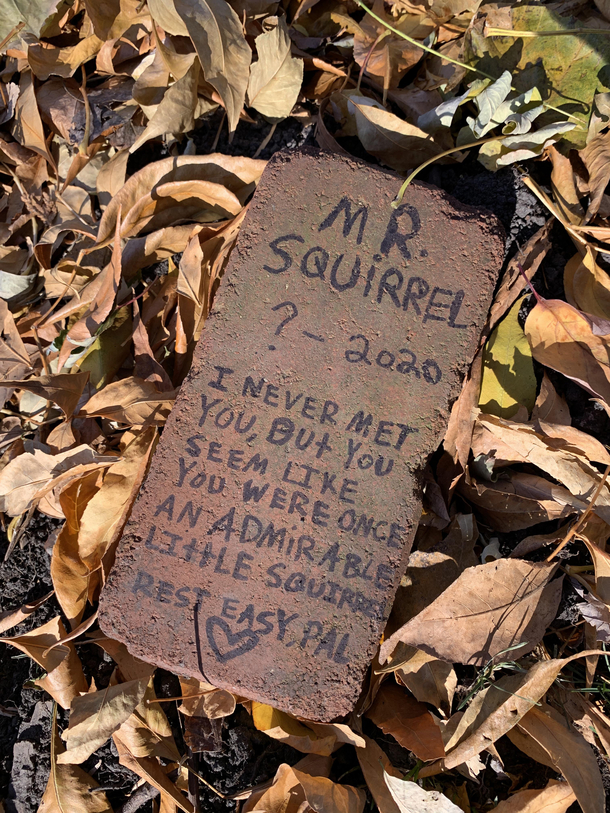 MR.
SQUIRREL
? - 2020
I NEVER MET
YOU, BUT YOU
SEEM LIKE
YOU WERE ONCE
AN ADMIRABLE
LITTLE SQUIRREL
REST EASY, PAL